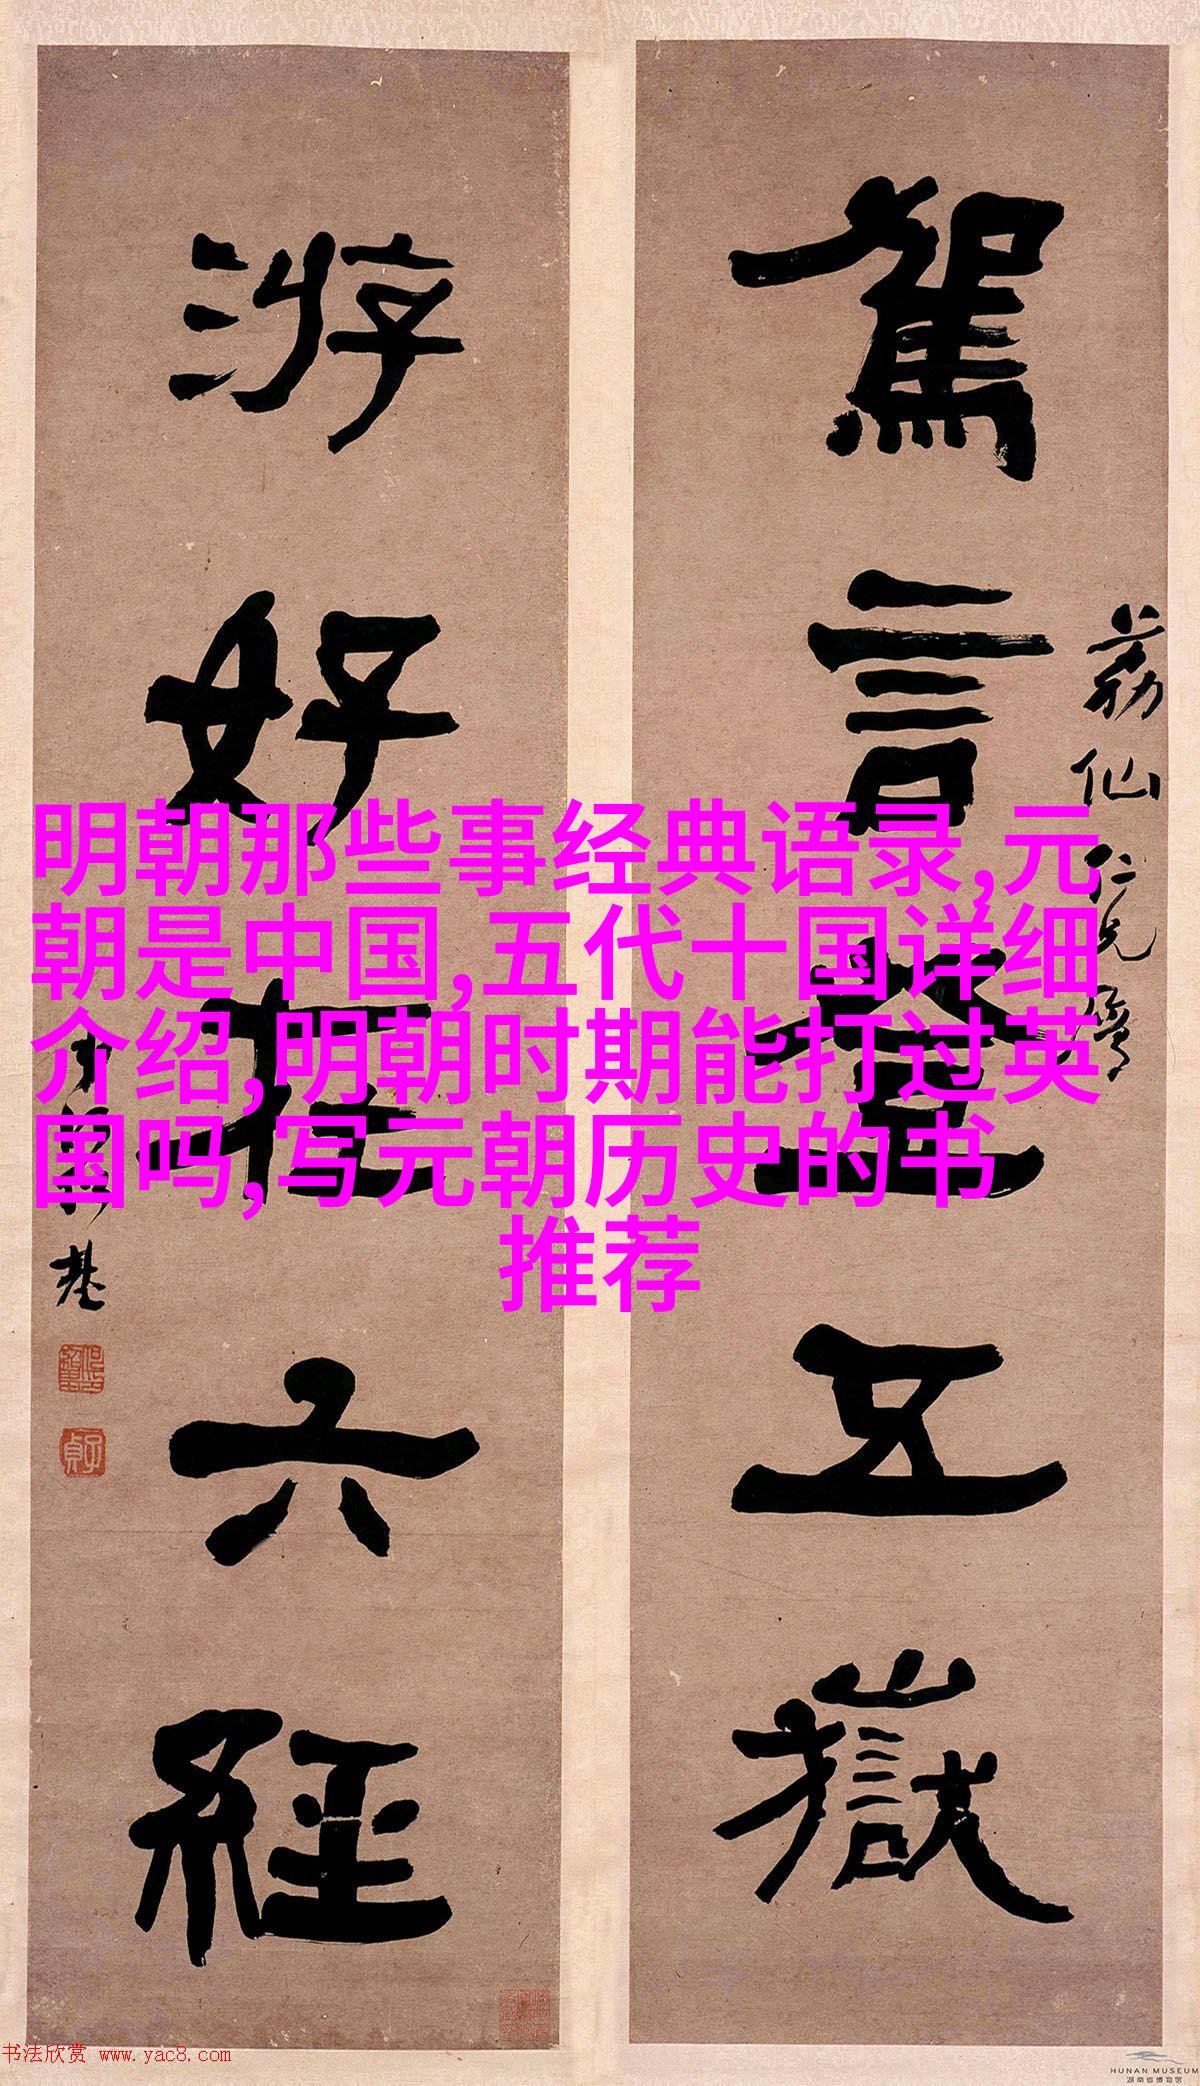 駕言登五嶽
荔仙仁兄
游好在六經
基
子貞
明朝那些事经典语录,元
朝是中国,五代十国详细
介绍,明朝时期能打过英
国吗,写元朝历史的书
推荐
书法欣赏 www.yac8.com
HUNAN MUSEUM
湖南省博物馆